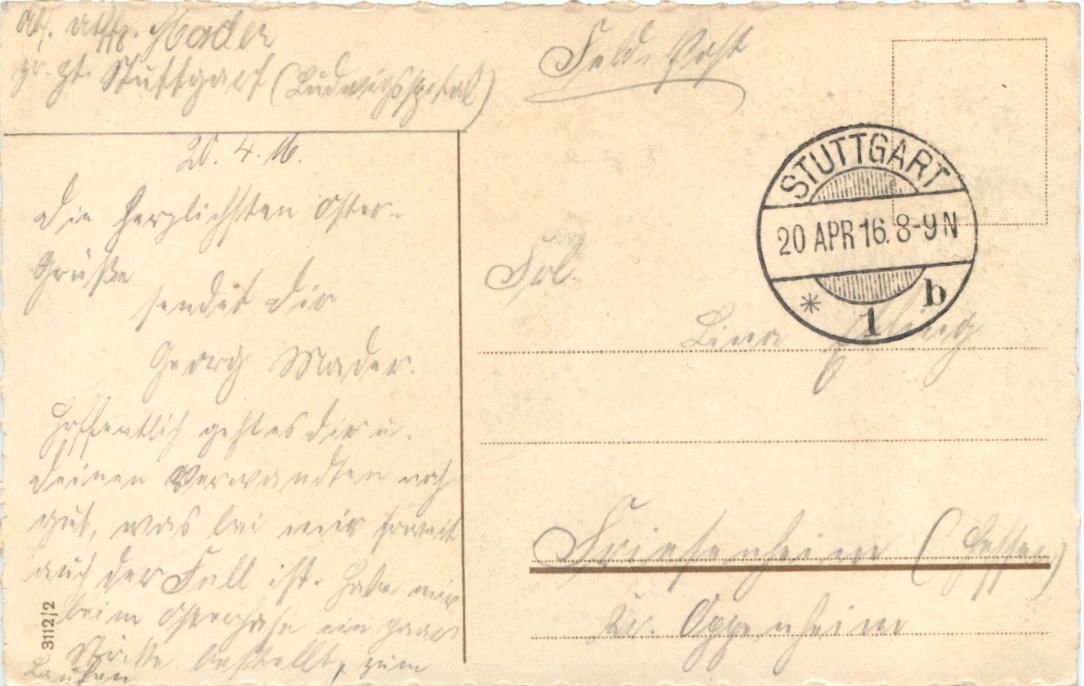 Abs. Uffz. Mader
zr. Zt. Stuttgart (Ludwigsspital)
20.4.16.
Die herzlichsten Oster-
Grüße
sendet Dir
Georg Mader.
Hoffentlich geht es Dir u.
Deinen Verwandten noch
gut, was bei mir soweit
auch der Fall ist. Habe mir
beim Osterhase ein paar
bestellt, zum
Laufen
3112/2
Feld-Post
STUTTGART
20 APR 16. 8-9 N
* 1 b
Frl.
Lina
Friesenheim (Hessen)
Kr. Oppenheim